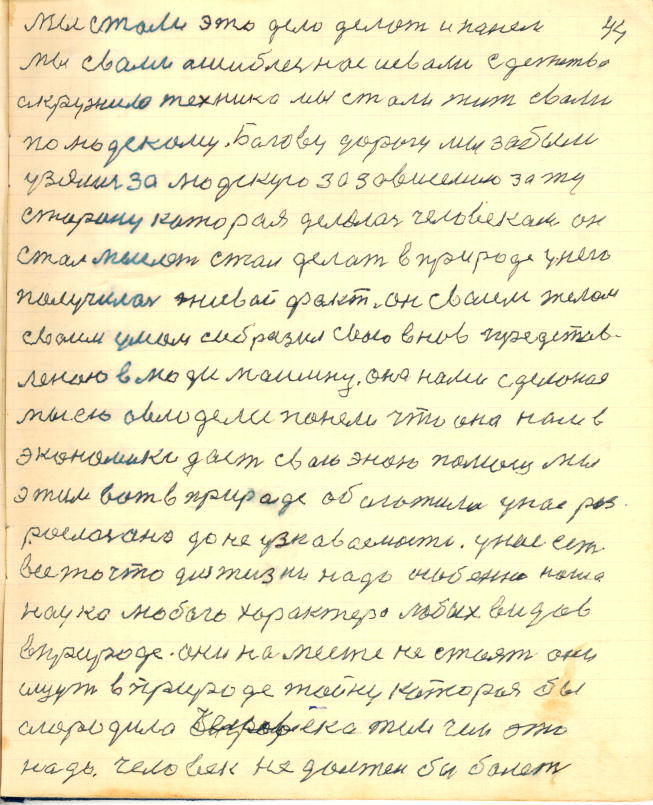 мы стали это дело делат и панели 44
мы свами ашиблен нас невали с детства
акружила техника мы стали жит свали
по людскому. Багову дорогу мы забыли
узялис за людскую за зависемаю за ту
старану каторая делалас человекам он
стал мыслет стал делат в природе у него
получилас живой факт. он сваем телом
сваим умом сабразил сваю внов представ-
леною в люди машину. она нами сделоная
мыслю овлодели панели что она нам в
экономики даст сваю эною помощ мы
этим вот в природе обагатили у нас роз
рослас ана до не узноваемости. у нас ест
все то что для жизни надо особенно наша
наука любого характера любых видов
в природе. они на месте не стоят они
ищут в природе тайну каторая бы
агородила человека тем чем это
надо. Человек не должен бы болет